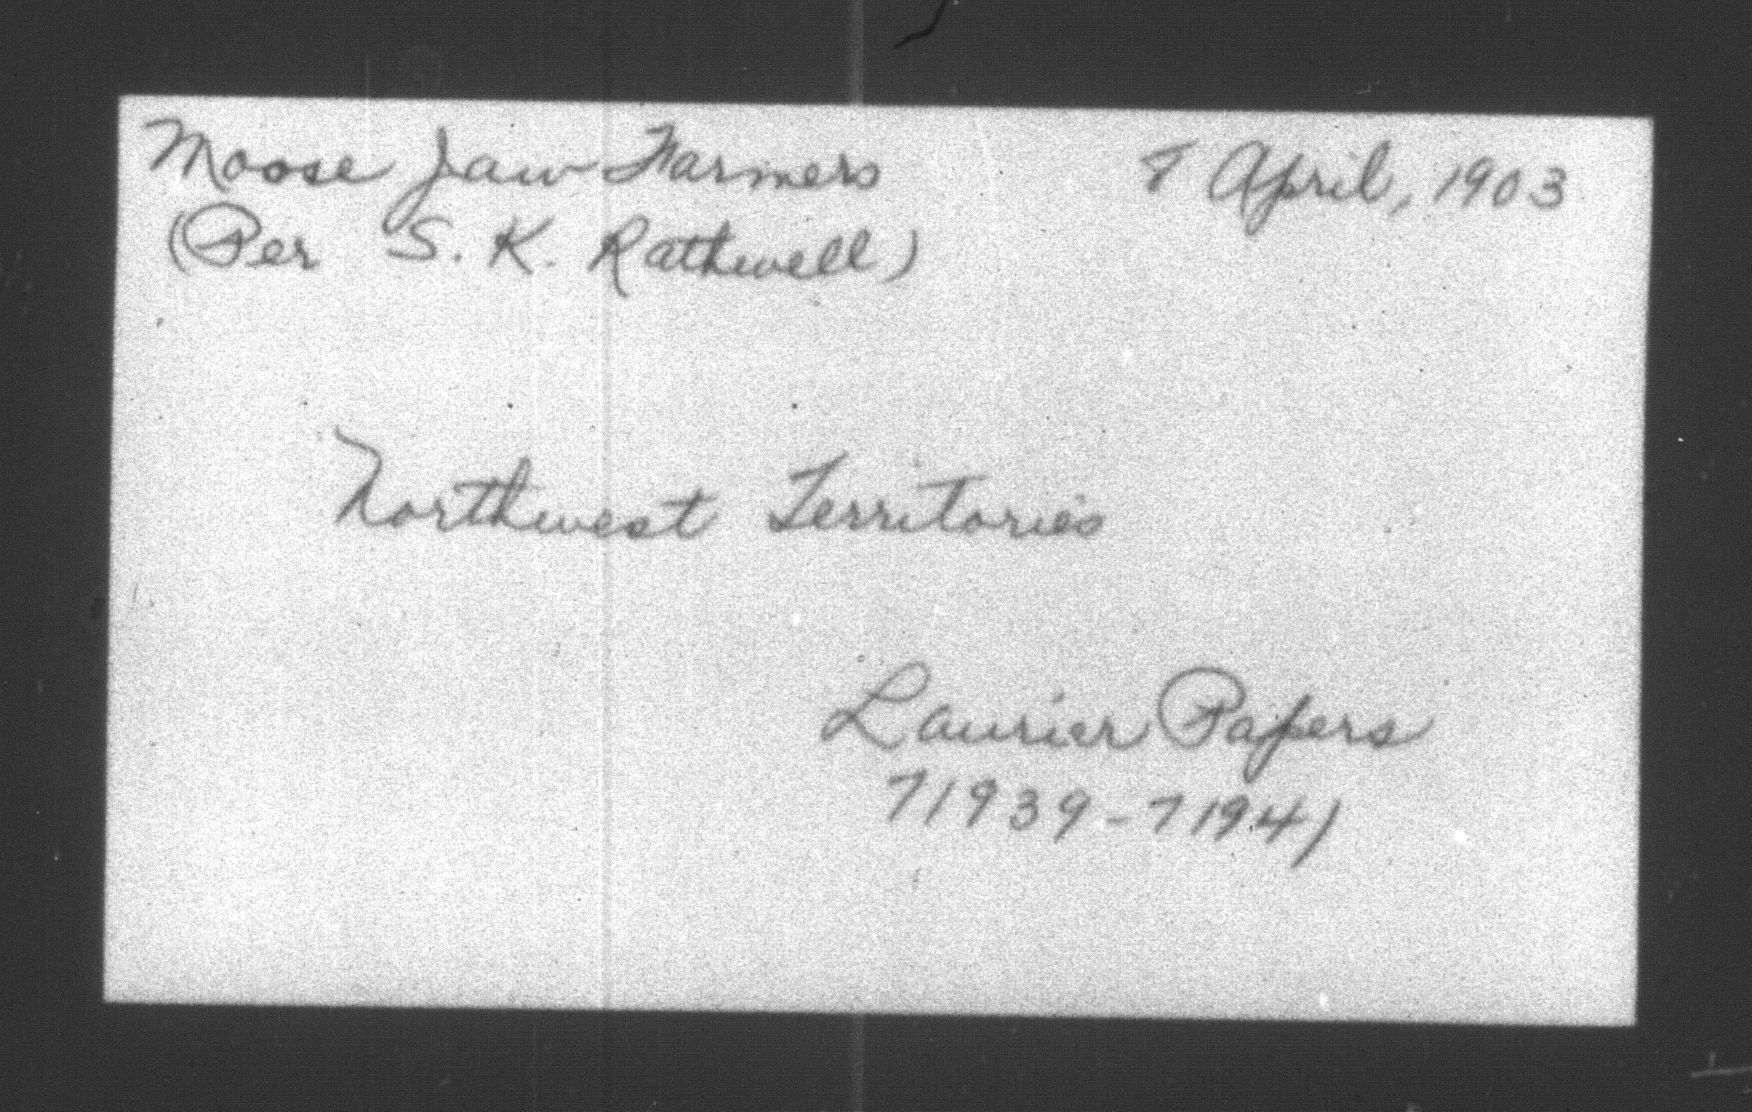 Moose Jaw Farmers 8 April, 1903
(Per S. K. Rathwell)
Northwest Territories
Laurier Papers
71939-71941